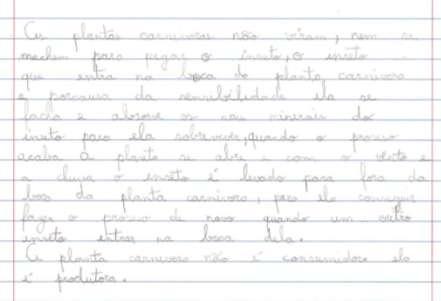 As plantas carnivoras não viram, nem se
mechem para pegar o inseto, o inseto
que entra na boca da planta carnivora
e porcausa da sensibilidade ela se
facha e absorve os seu minerais do
inseto para ela sobreviver, quando o proceso
acaba a planta se abre e com o vento e
a chuva o inseto é levado para fora da
boca da planta carnivora, para ela conseguir
fazer o proceso de novo quando um outro
inseto entrar na boca dela.
A planta carnivora não é consumidora ela
é produtora.